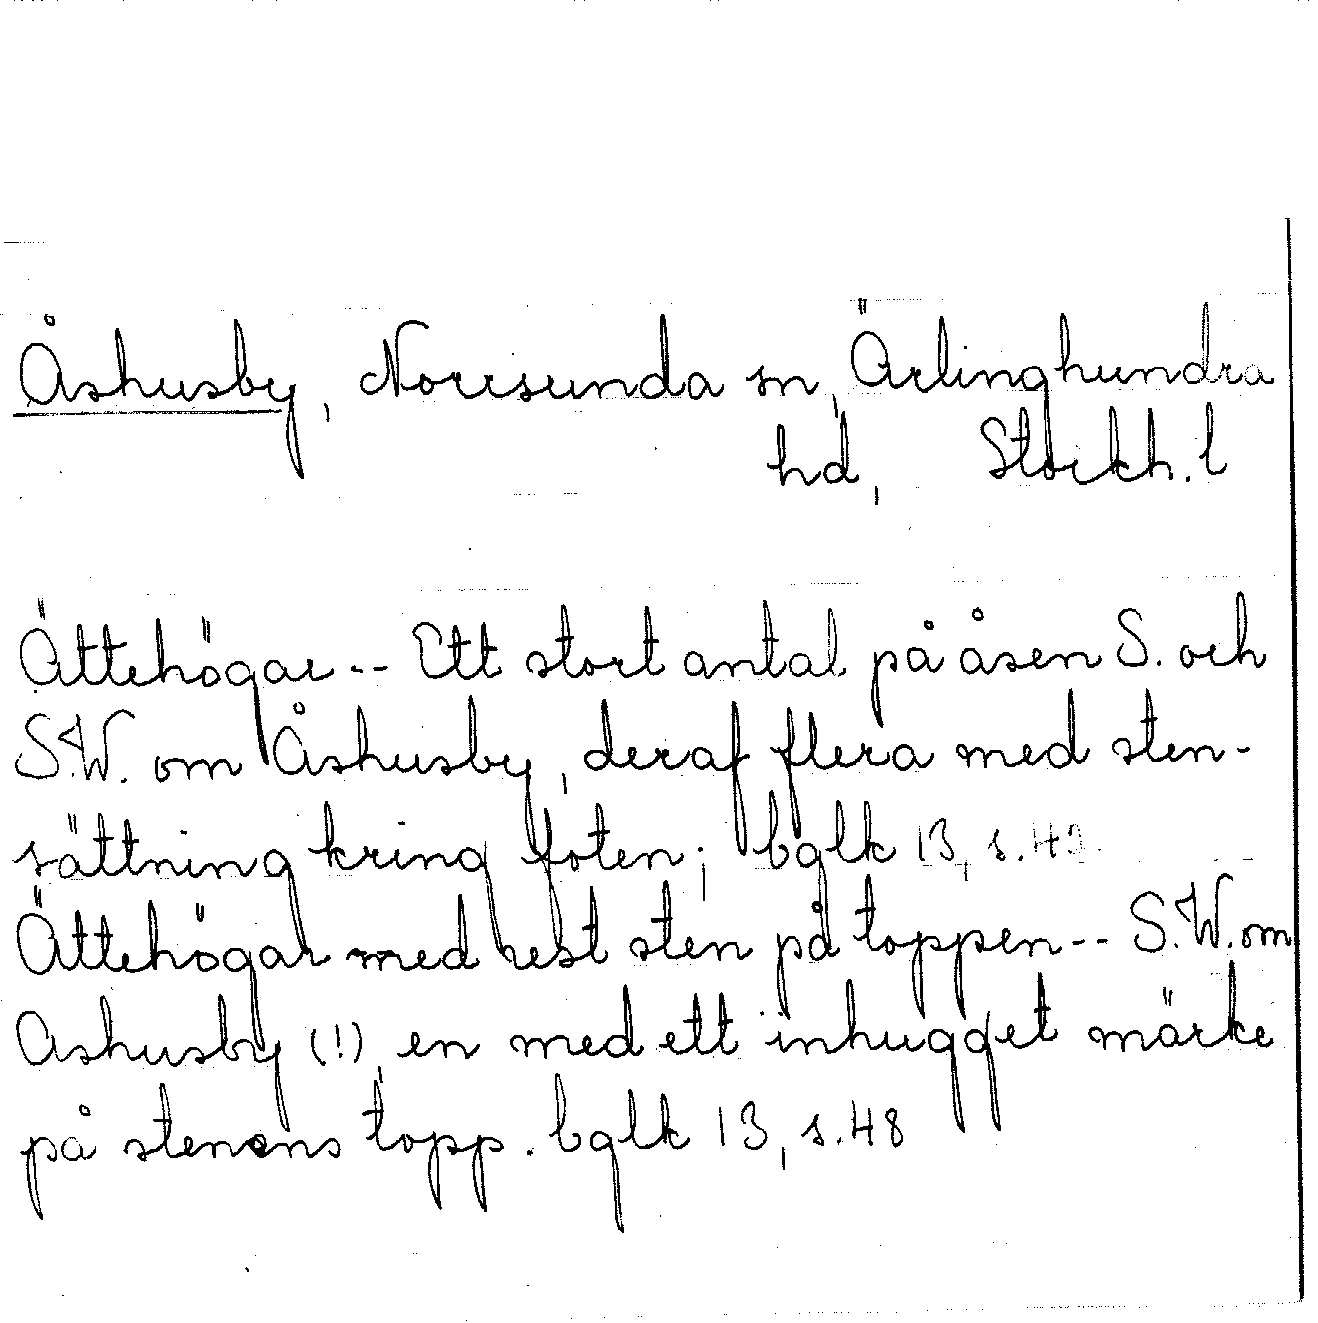 Åshusby, Norrsunda sn, Ärlinghundra
hd, Stockh. l
Ättehögar -- Ett stort antal på åsen S. och
S.W. om Åshusby, deraf flera med sten-
sättning kring foten; bglk 13, s.49.
Ättehögar med rest sten på toppen -- S.W. om
Ashusby (!), en med ett inhugget märke
på stenens topp. bglk 13, s.48